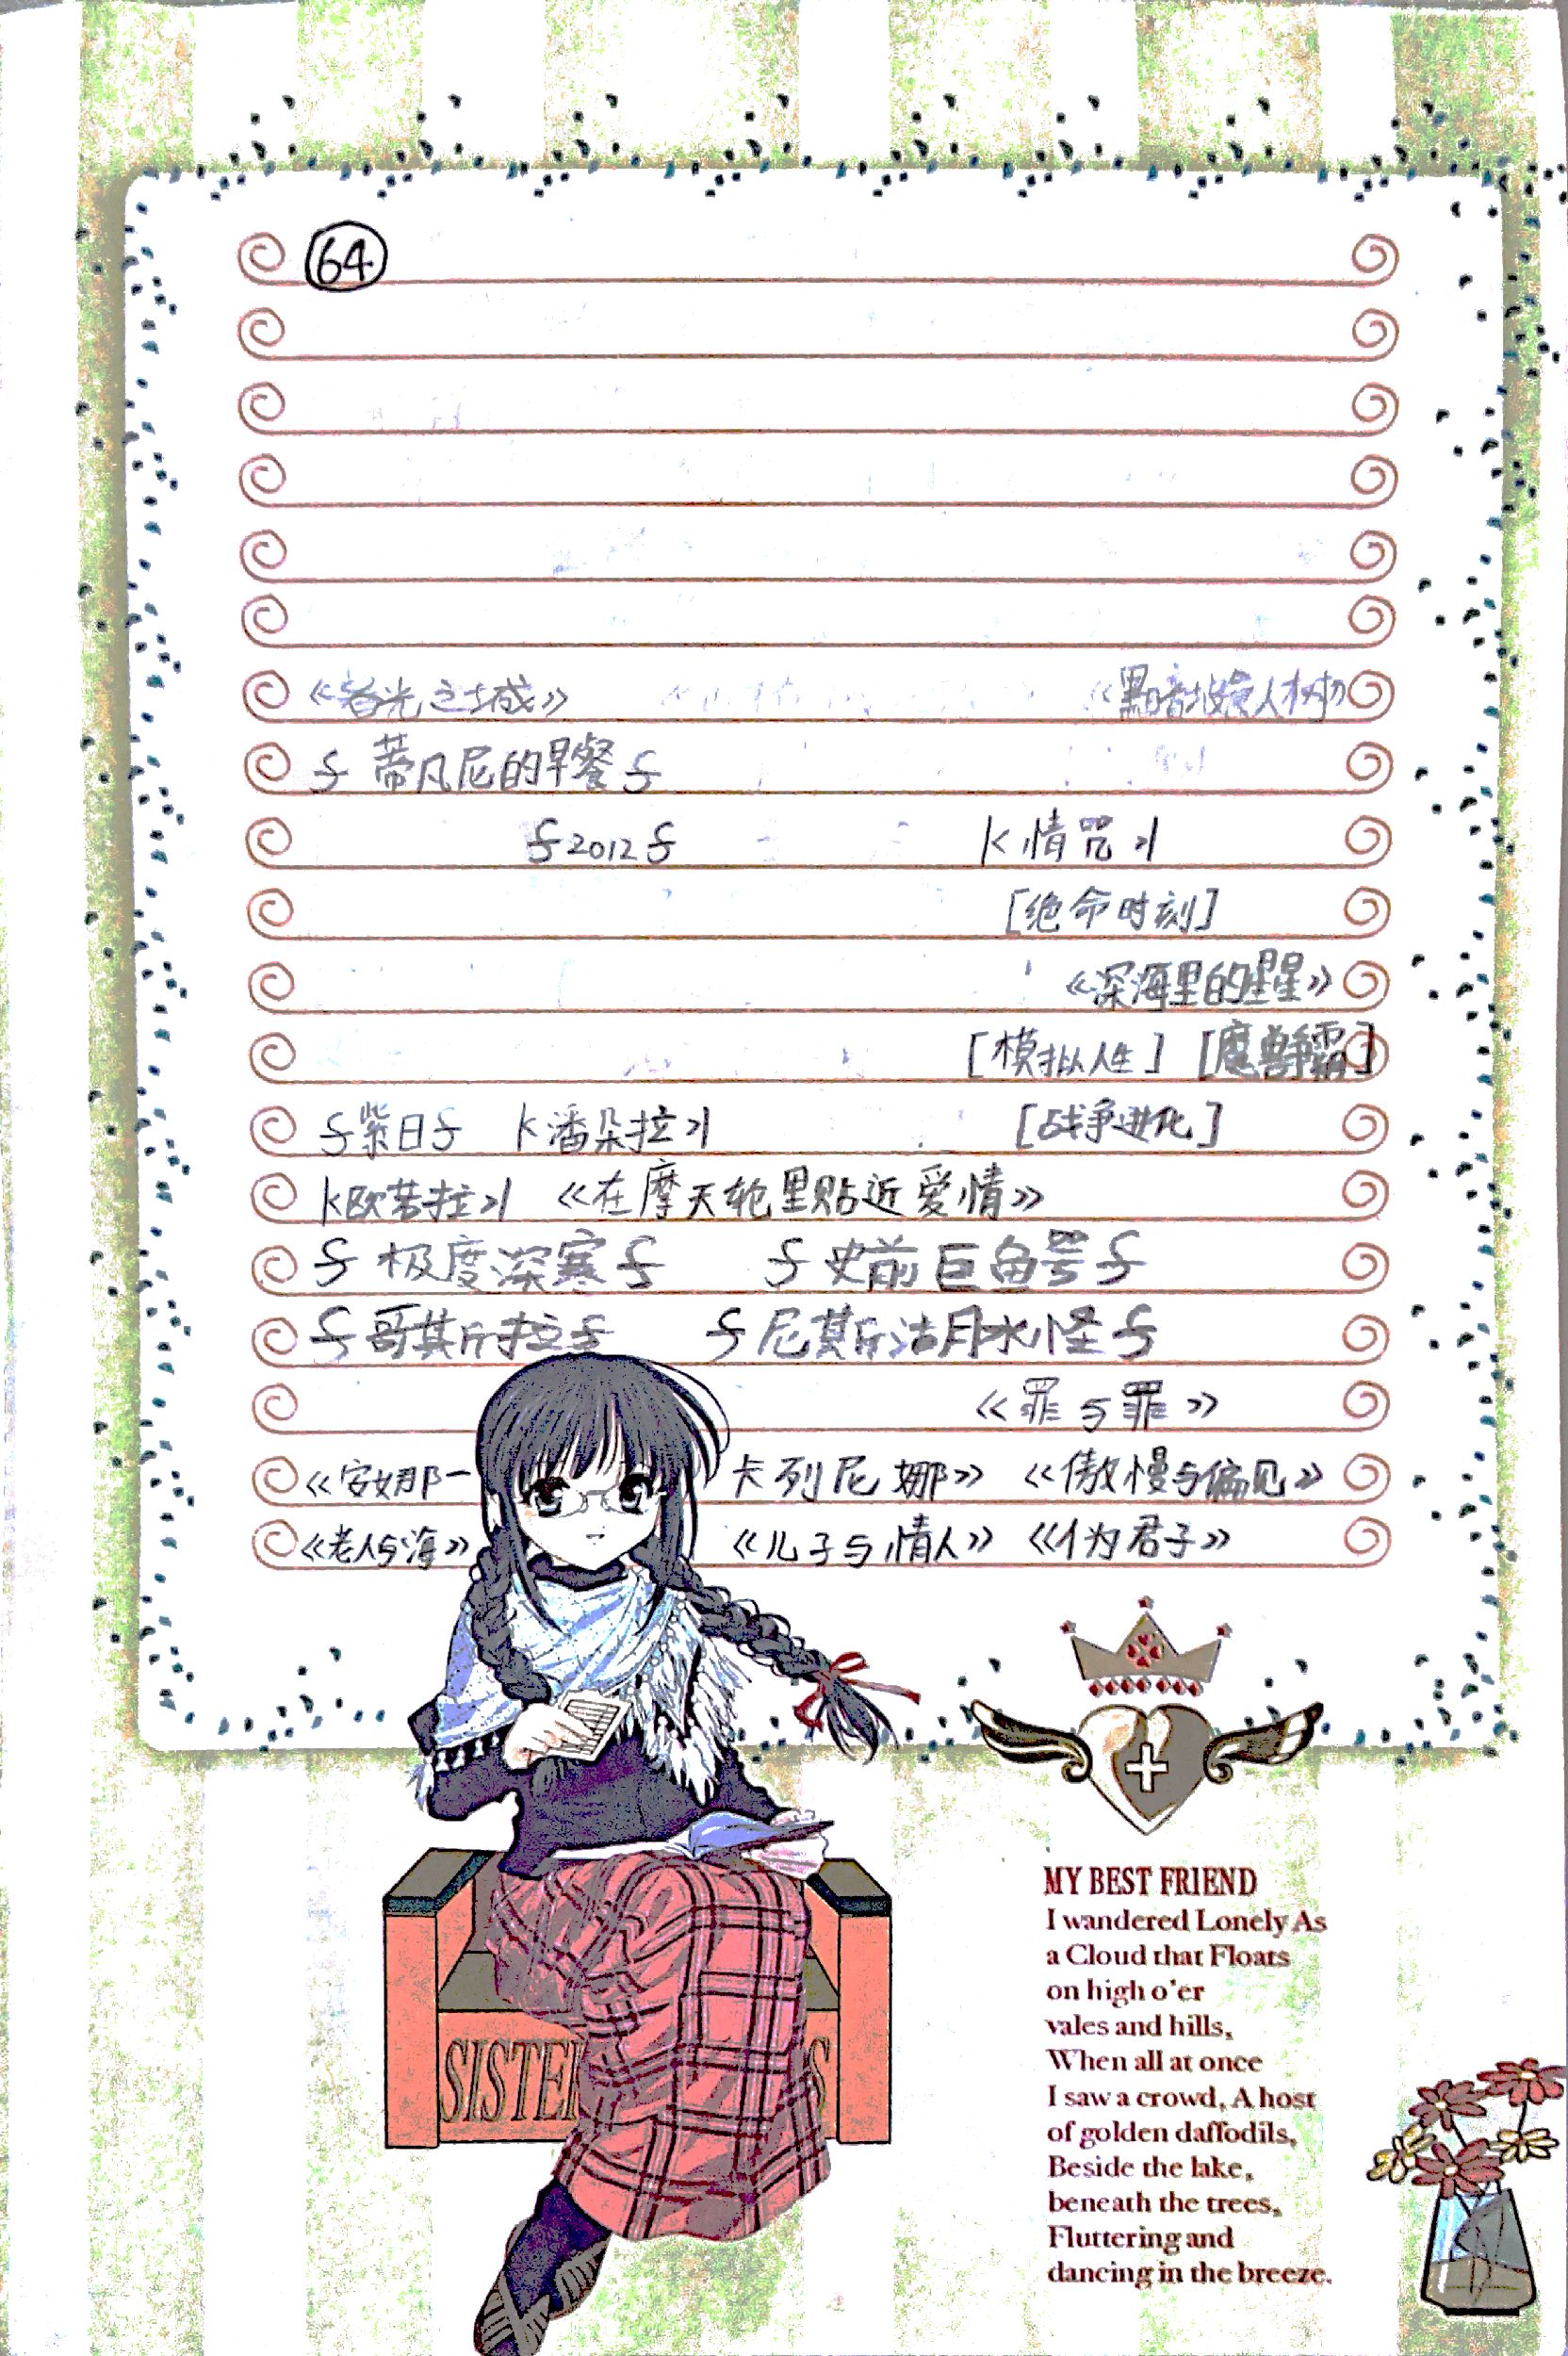 64
《春光之城》
∮蒂凡尼的早餐∮
∮2012∮ К情咒Х
[绝命时刻]
《深海里的星星》
[模拟人生] [魔兽争霸]
∮紫日∮ К潘朵拉Х [战争进化]
К欧若拉Х 《在摩天轮里贴近爱情》
∮极度深寒∮ ∮史前巨鱼号∮
∮哥斯拉∮ ∮尼斯湖水怪∮
《罪与罪》
《安娜一卡列尼娜》 《傲慢与偏见》
《老人与海》 《儿子与情人》 《伪君子》
MY BEST FRIEND
I wandered Lonely As
a Cloud that Floats
on high o'er
vales and hills,
When all at once
I saw a crowd, A host
of golden daffodils,
Beside the lake,
beneath the trees,
Fluttering and
dancing in the breeze.